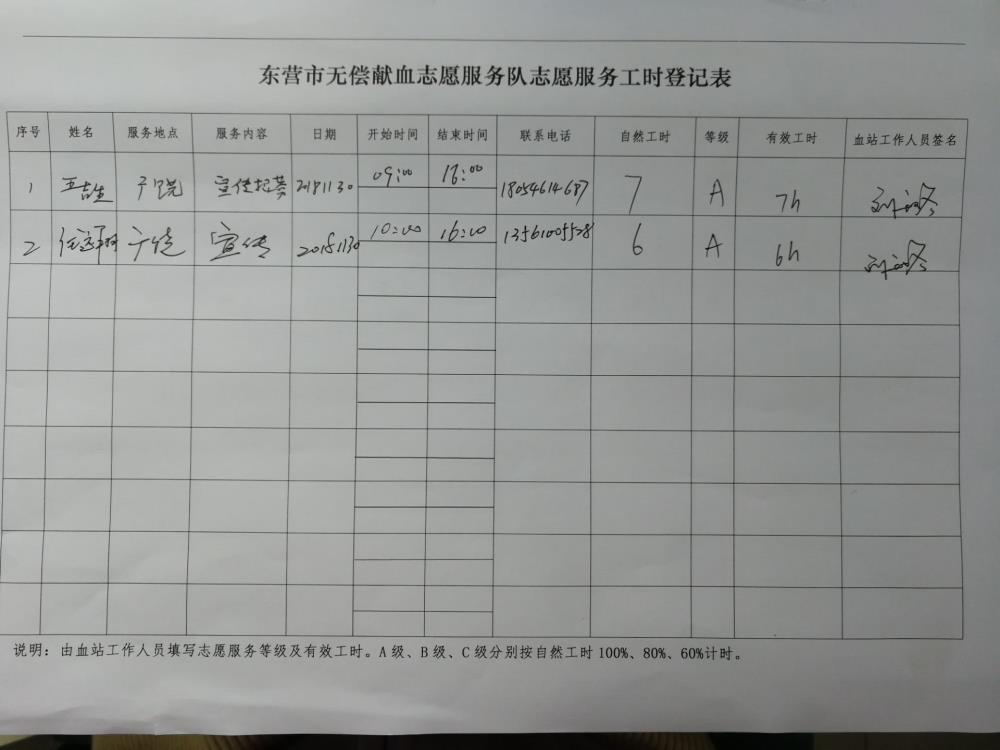 东营市无偿献血志愿服务队志愿服务工时登记表
序号 姓名 服务地点 服务内容 日期 开始时间 结束时间 联系电话 自然工时 等级 有效工时 血站工作人员签名
1 广饶 宣传招募 20181130 09:00 16:00 18054614687 7 A 7h
2 广饶 宣传 20181130 10:00 16:00 13561005528 6 A 6h
说明：由血站工作人员填写志愿服务等级及有效工时。A级、B级、C级分别按自然工时100%、80%、60%计时。